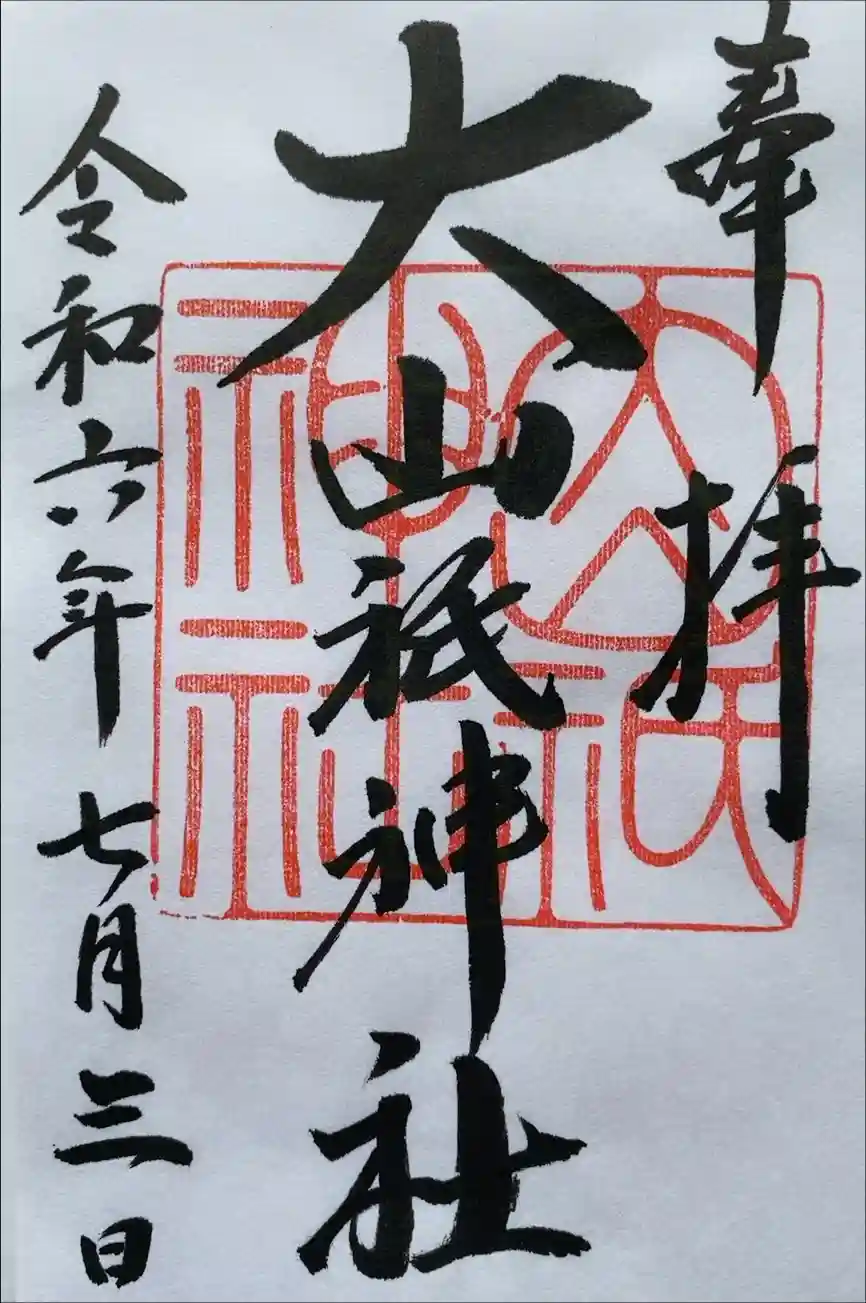 奉拝
大山祇神社
大山祇神社
令和六年七月三日